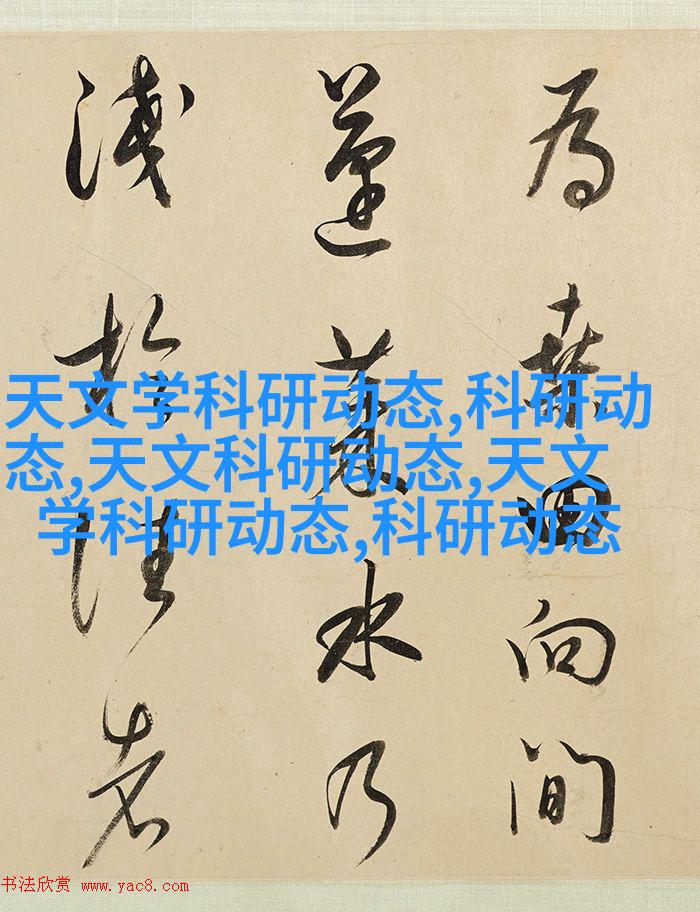 為桑田向間
蓬萊水乃
淺於往者
天文学科研动态,科研动
态,天文科研动态,天文
学科研动态,科研动态
书法欣赏 www.yac8.com